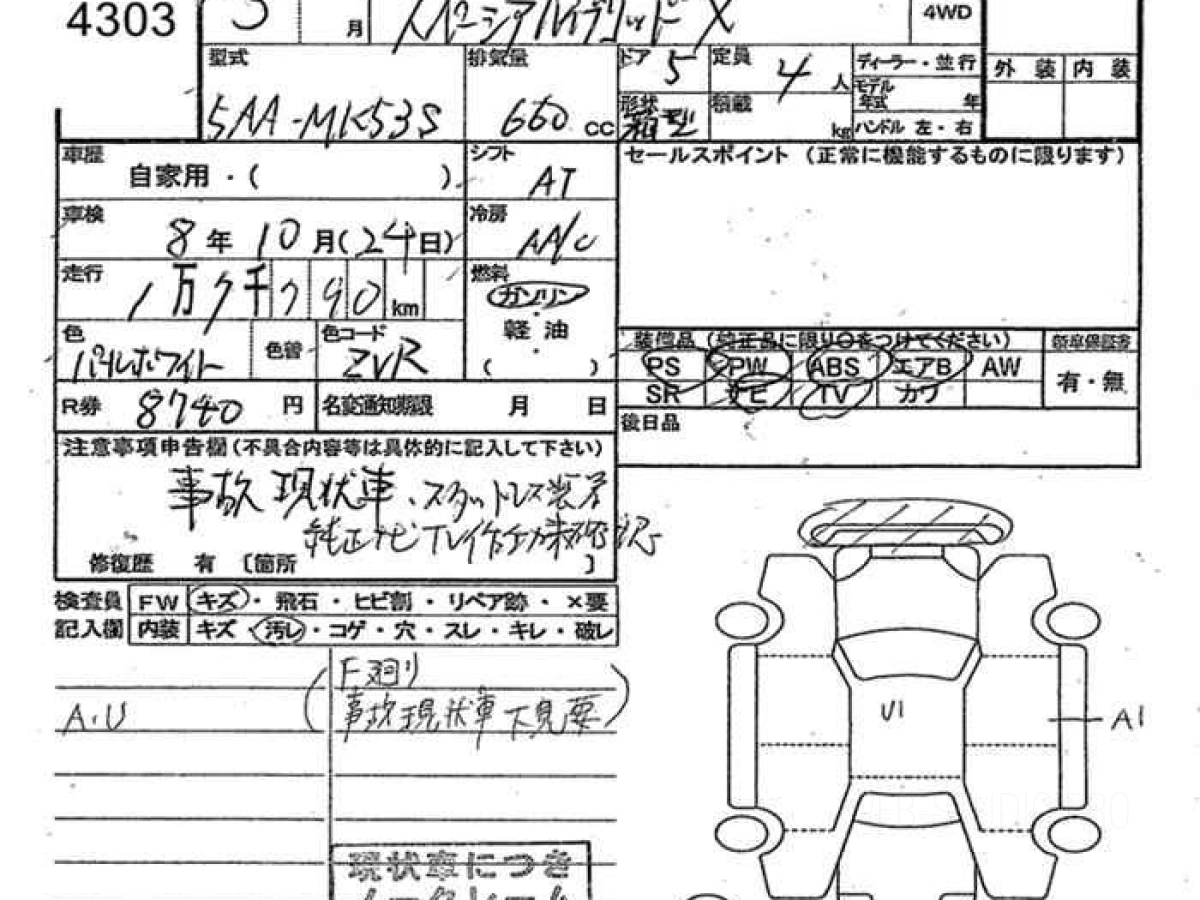 4303
3 月
スペーシアハイブリッド X
4WD
型式 5AA-MK53S
排気量 660 cc
ドア 5
定員 4 人
形状 箱型
積載 kg
ディーラー・並行
モデル年式 年
ハンドル 左・右
外装 内装
車歴 自家用・( )
シフト AT
セールスポイント (正常に機能するものに限ります)
車検 8年10月(24日)
冷房 AA/C
走行 1万7千790km
燃料 ガソリン
軽油
( )
色 パールホワイト
色替
色コード ZVR
装備品 (純正品に限り○をつけてください)
新車保証書
PS PW ABS エアB AW
有・無
SR PE TV カワ
R券 8740 円
名変通知期限 月 日
後日品
注意事項申告欄(不具合内容等は具体的に記入して下さい)
事故現状車、スタットレス装着
純正ナビTV作動未確認
修復歴 有 〔箇所 〕
検査員 FW キズ・飛石・ヒビ割・リペア跡・×要
記入欄 内装 キズ・汚レ・コゲ・穴・スレ・キレ・破レ
F廻り
A.U
(事故現状車下見要)
U1
A1
現状車につき